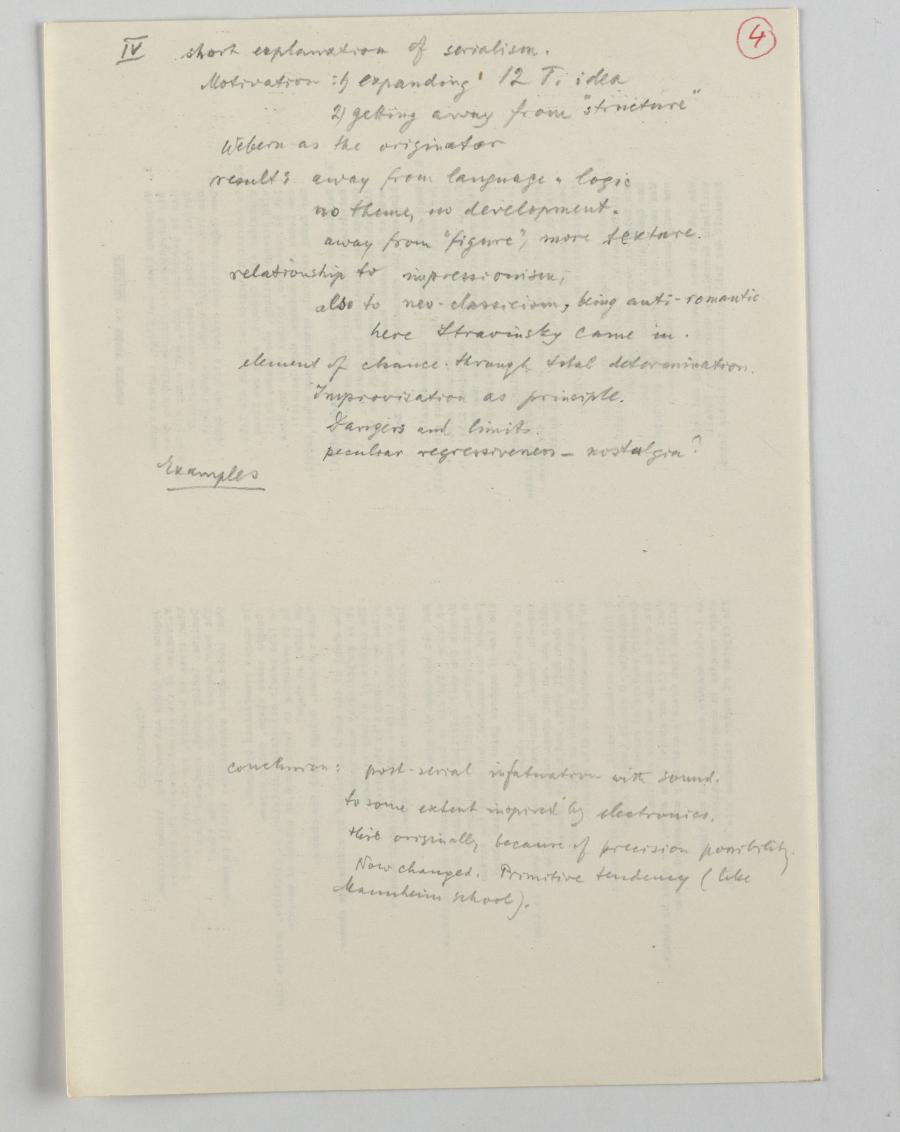 4
IV short explanation of serialism.
Motivation: 1) expanding 12 T. idea
2) getting away from "structure"
Webern as the originator
result: away from language & logic
no theme, no development.
away from "figure", more texture.
relationship to impressionism,
also to neo-classicism, being anti-romantic
here Stravinsky came in.
element of chance through total determination.
Improvisation as principle.
Dangers and limits.
peculiar regressiveness – nostalgia?
Examples
conclusion: post-serial infatuation with sound.
to some extent inspired by electronics.
this originally because of precision possibility.
Now changed. Primitive tendency (like
Mannheim school).